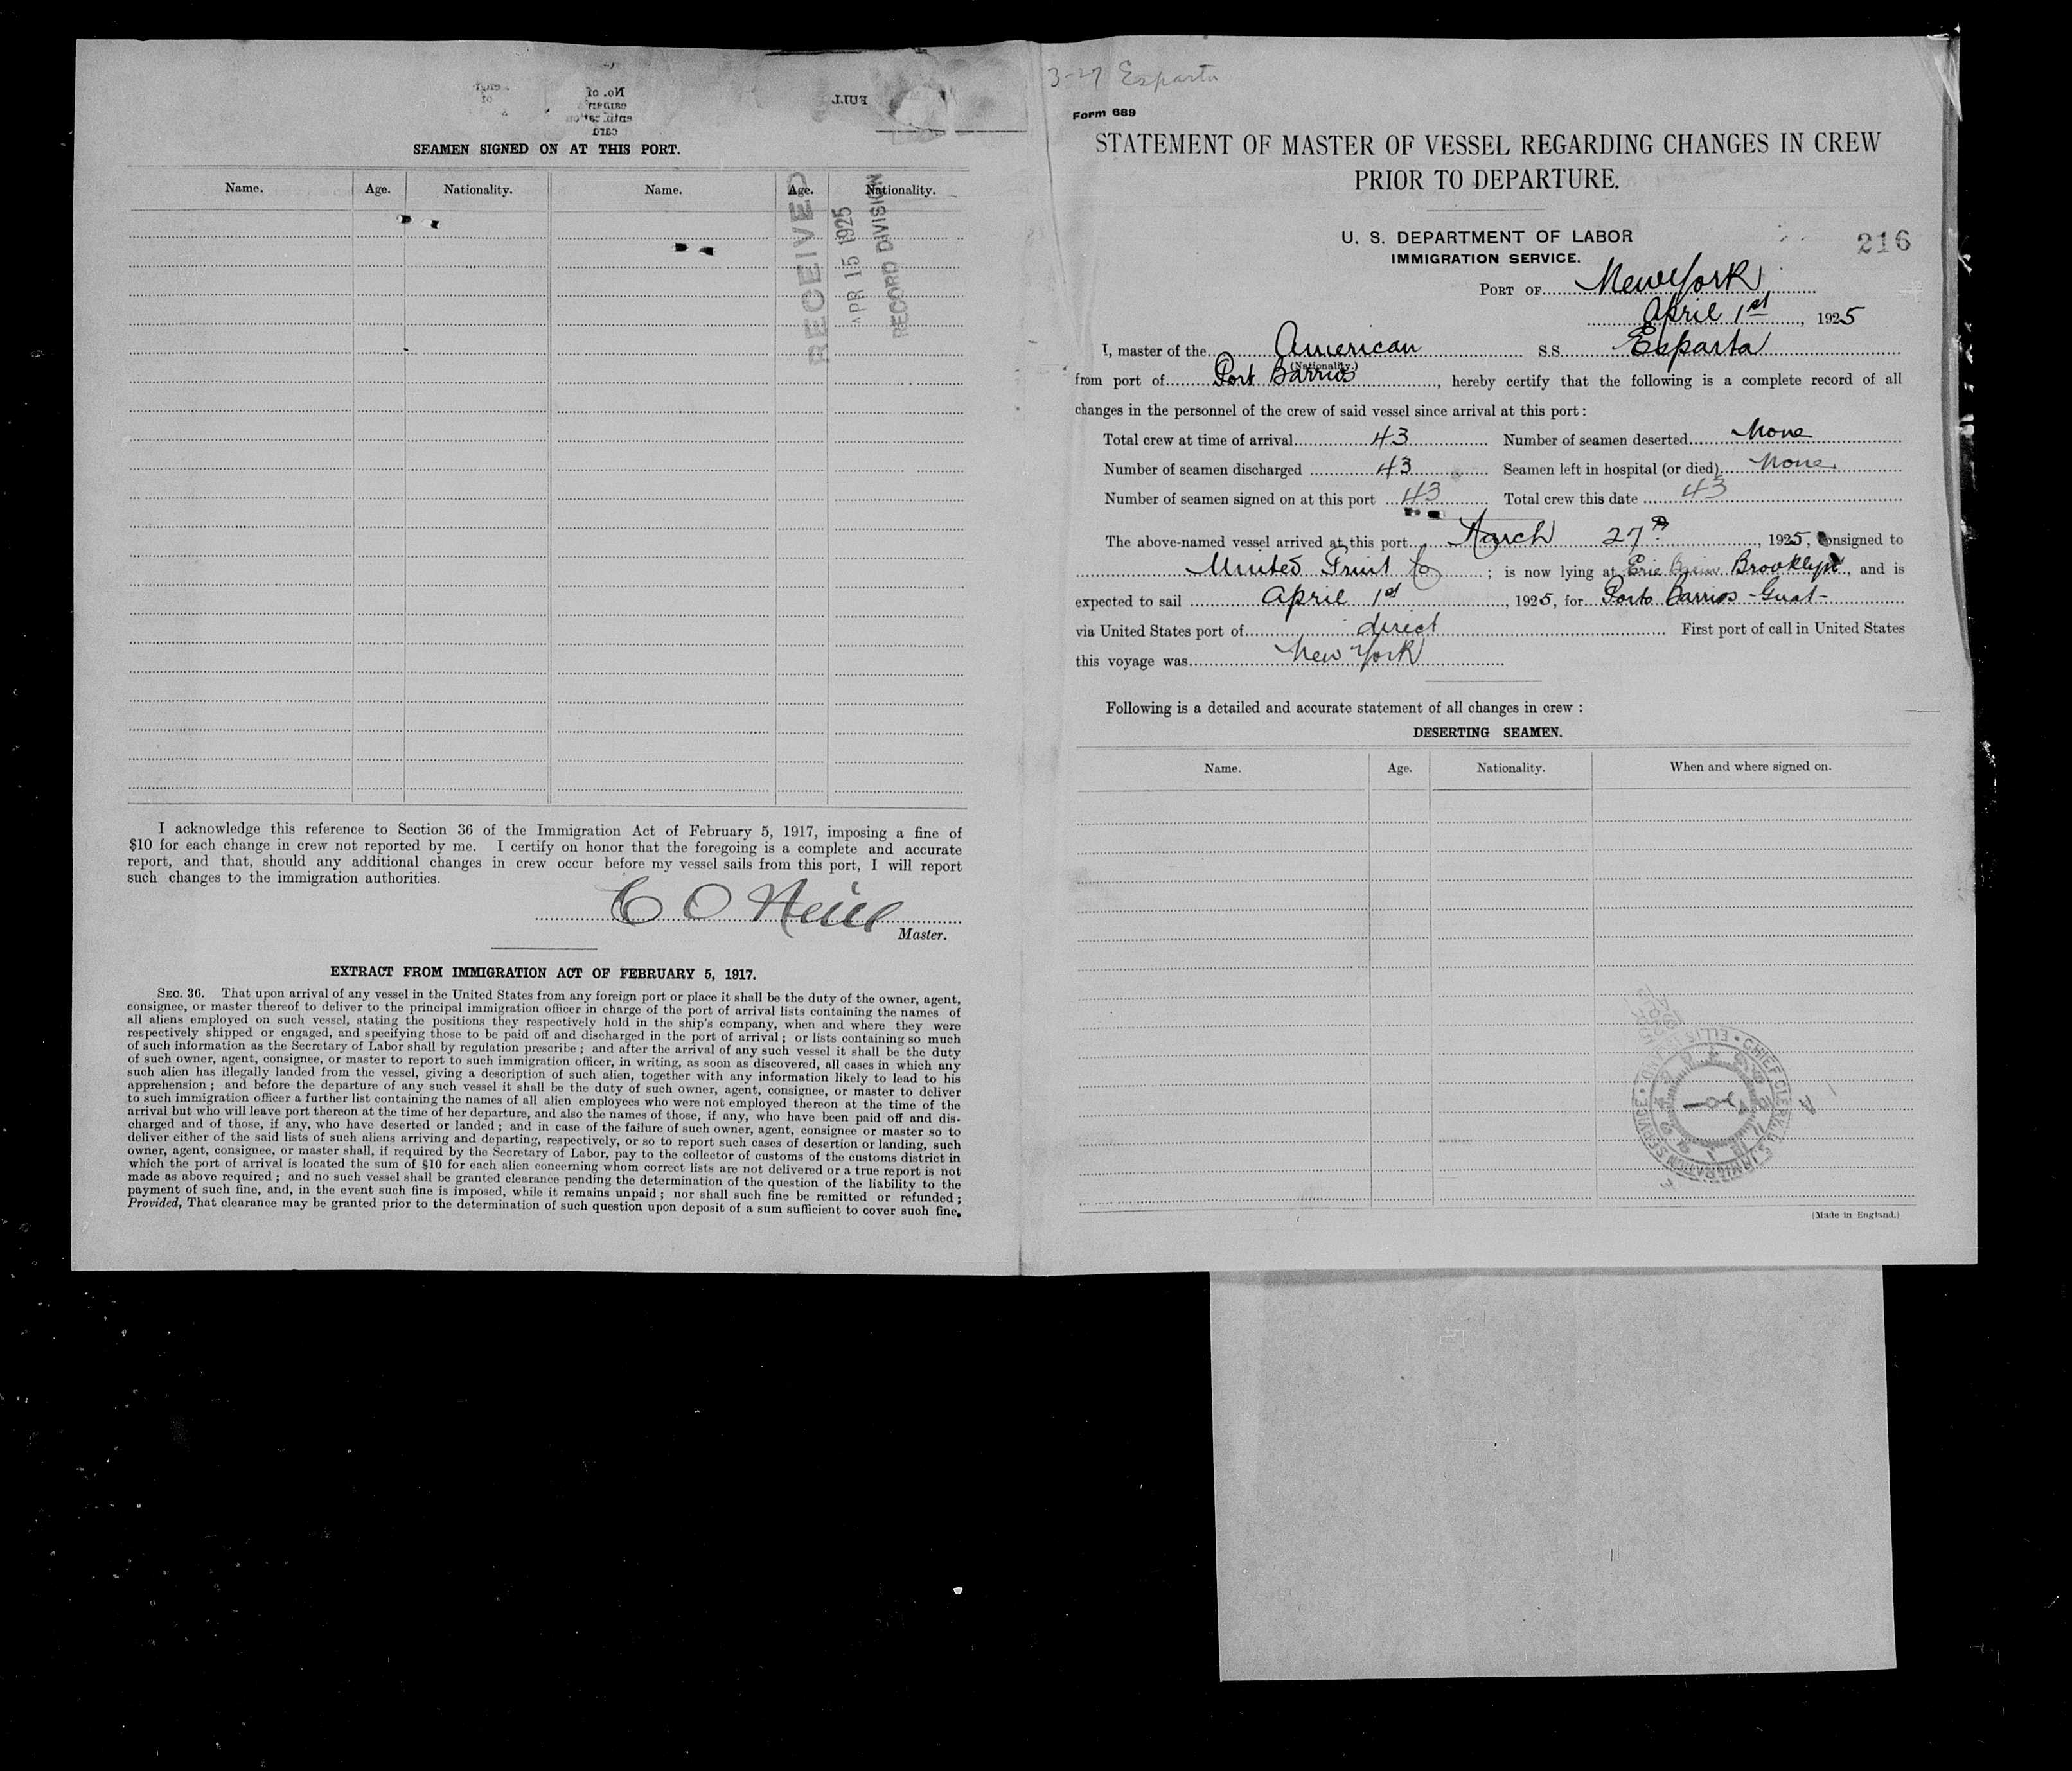 No. of
card
FULL
SEAMEN SIGNED ON AT THIS PORT.
Name. Age. Nationality. Name. Age. Nationality.
RECEIVED
APR 15 1925
RECORD DIVISION
I acknowledge this reference to Section 36 of the Immigration Act of February 5, 1917, imposing a fine of
$10 for each change in crew not reported by me. I certify on honor that the foregoing is a complete and accurate
report, and that, should any additional changes in crew occur before my vessel sails from this port, I will report
such changes to the immigration authorities.
C O Neill
Master.
EXTRACT FROM IMMIGRATION ACT OF FEBRUARY 5, 1917.
SEC. 36. That upon arrival of any vessel in the United States from any foreign port or place it shall be the duty of the owner, agent,
consignee, or master thereof to deliver to the principal immigration officer in charge of the port of arrival lists containing the names of
all aliens employed on such vessel, stating the positions they respectively hold in the ship's company, when and where they were
respectively shipped or engaged, and specifying those to be paid off and discharged in the port of arrival; or lists containing so much
of such information as the Secretary of Labor shall by regulation prescribe; and after the arrival of any such vessel it shall be the duty
of such owner, agent, consignee, or master to report to such immigration officer, in writing, as soon as discovered, all cases in which any
such alien has illegally landed from the vessel, giving a description of such alien, together with any information likely to lead to his
apprehension; and before the departure of any such vessel it shall be the duty of such owner, agent, consignee, or master to deliver
to such immigration officer a further list containing the names of all alien employees who were not employed thereon at the time of the
arrival but who will leave port thereon at the time of her departure, and also the names of those, if any, who have been paid off and dis-
charged and of those, if any, who have deserted or landed; and in case of the failure of such owner, agent, consignee or master so to
deliver either of the said lists of such aliens arriving and departing, respectively, or so to report such cases of desertion or landing, such
owner, agent, consignee, or master shall, if required by the Secretary of Labor, pay to the collector of customs of the customs district in
which the port of arrival is located the sum of $10 for each alien concerning whom correct lists are not delivered or a true report is not
made as above required; and no such vessel shall be granted clearance pending the determination of the question of the liability to the
payment of such fine, and, in the event such fine is imposed, while it remains unpaid; nor shall such fine be remitted or refunded;
Provided, That clearance may be granted prior to the determination of such question upon deposit of a sum sufficient to cover such fine.
3-27 Esparta
Form 689
STATEMENT OF MASTER OF VESSEL REGARDING CHANGES IN CREW
PRIOR TO DEPARTURE.
U. S. DEPARTMENT OF LABOR
IMMIGRATION SERVICE.
216
PORT OF New York
April 1st, 1925
I, master of the American S.S. Esparta
(Nationality.)
from port of Port Barrios, hereby certify that the following is a complete record of all
changes in the personnel of the crew of said vessel since arrival at this port:
Total crew at time of arrival 43 Number of seamen deserted None
Number of seamen discharged 43 Seamen left in hospital (or died) None
Number of seamen signed on at this port 43 Total crew this date 43
The above-named vessel arrived at this port March 27th, 1925, consigned to
United Fruit Co; is now lying at Erie Basin Brooklyn, and is
expected to sail April 1st, 1925, for Porto Barrios - Guat -
via United States port of direct First port of call in United States
this voyage was New York
Following is a detailed and accurate statement of all changes in crew:
DESERTING SEAMEN.
Name. Age. Nationality. When and where signed on.
CHIEF CLERK U.S. IMMIGRATION SERVICE • ELLIS ISLAND •
(Made in England.)